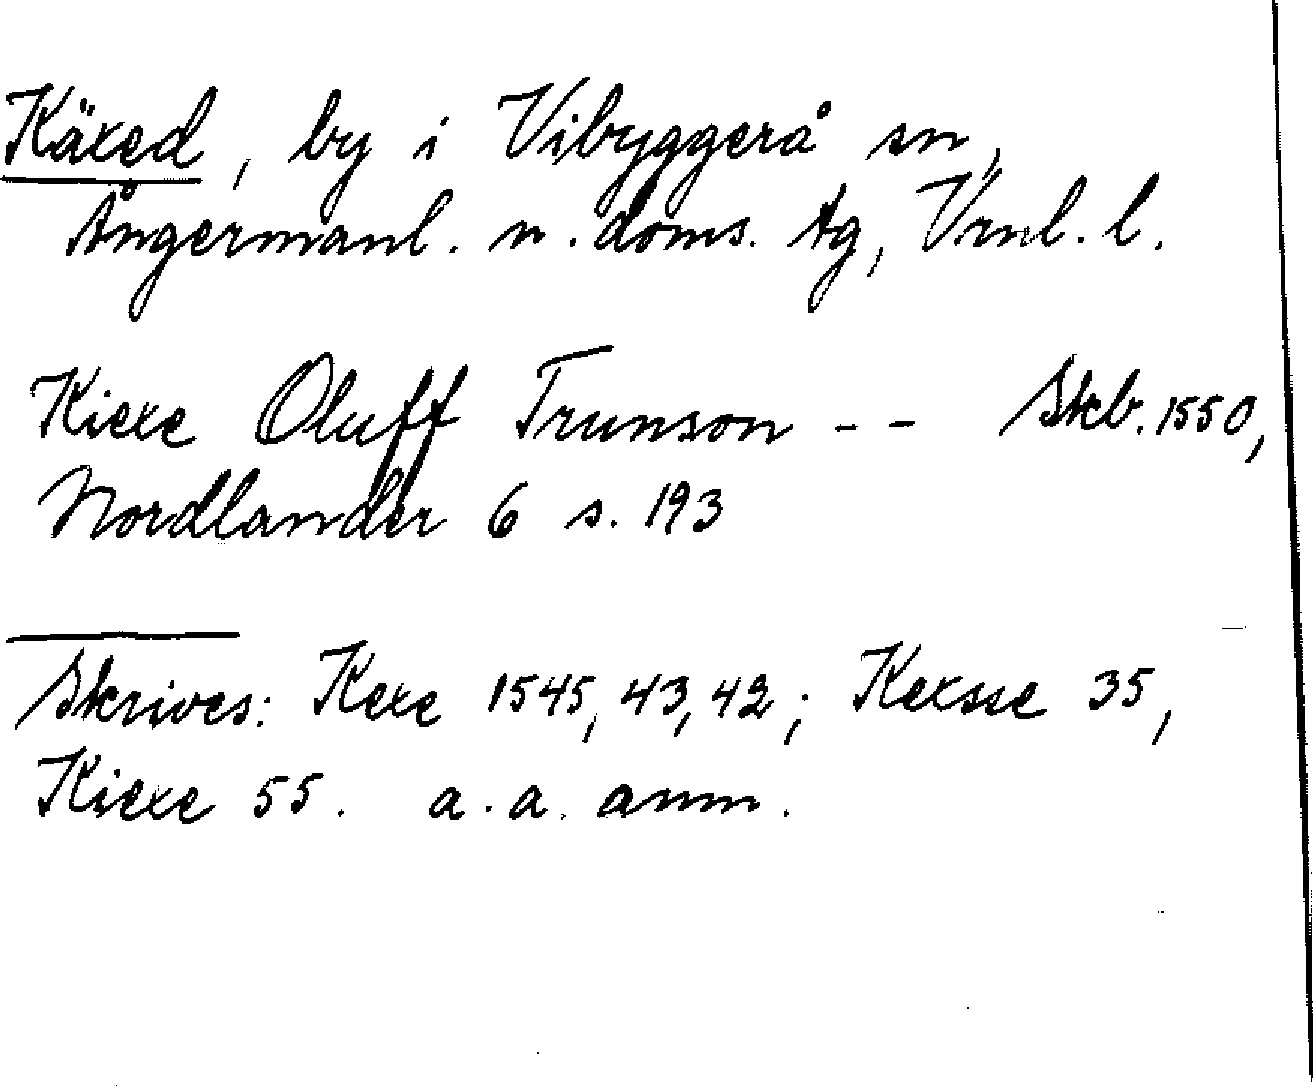 Käxed, by i Vibyggerå sn,
Ångermanl. n. doms. tg, Vrnl. l.
Kiexe Oluff Trunson - - Skb. 1550,
Nordlander 6 s. 193
Skrives: Kexe 1545, 43, 42; Kexsse 35,
Kiexe 55. a. a. anm.